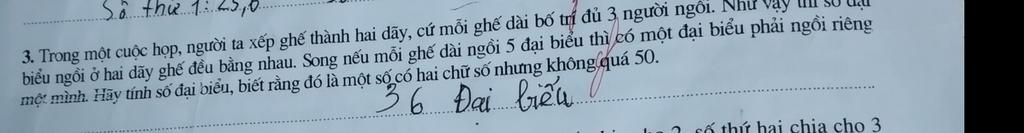 Số thứ 1: 25,0
3. Trong một cuộc họp, người ta xếp ghế thành hai dãy, cứ mỗi ghế dài bố trí đủ 3 người ngồi. Như vậy thì số đại
biểu ngồi ở hai dãy ghế đều bằng nhau. Song nếu mỗi ghế dài ngồi 5 đại biểu thì có một đại biểu phải ngồi riêng
một mình. Hãy tính số đại biểu, biết rằng đó là một số có hai chữ số nhưng không quá 50.
36 Đại biểu
số thứ hai chia cho 3